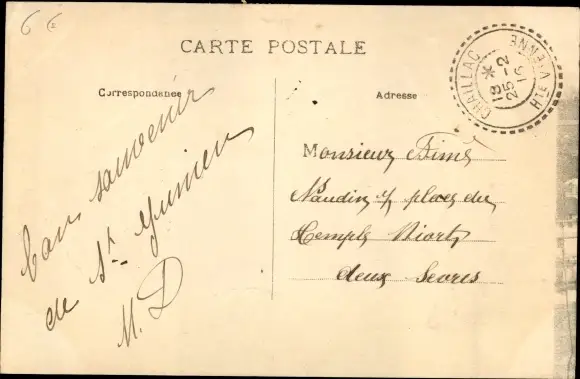 6 6
CARTE POSTALE
Correspondance
Adresse
CHAILLAC
HTE VIENNE
18 *
25 - 2
16
bon souvenir
de St Junien
M. D
Monsieur
Naudin 7 place du
Temple Niort
deux Sevres